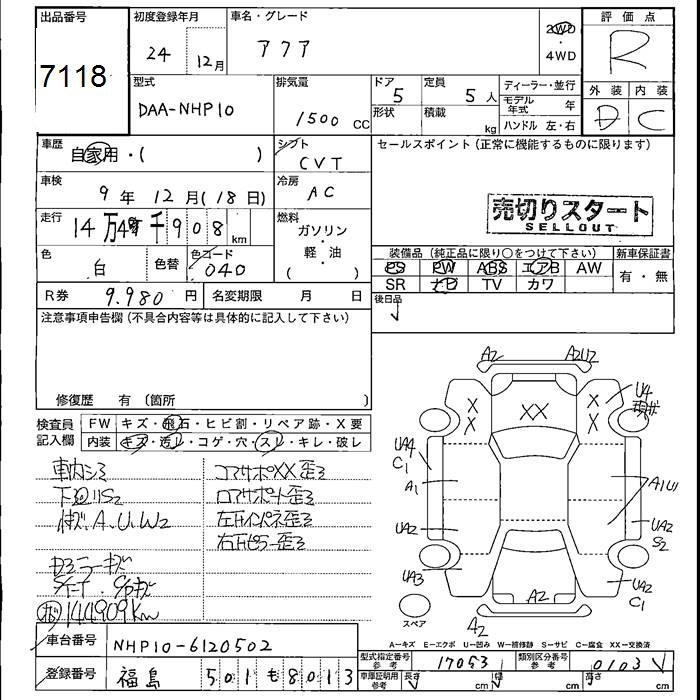 出品番号
7118
初度登録年月
24 12月
車名・グレード
アクア
2WD
・
4WD
評価点
R
型式
DAA-NHP10
排気量
1500 CC
ドア 5
形状
定員 5 人
積載 kg
ディーラー・並行
モデル年式 年
ハンドル 左・右
外装 内装
D C
車歴
自家用・( )
シフト
CVT
セールスポイント (正常に機能するものに限ります)
車検
9 年 12 月(18日)
冷房
AC
売切りスタート
SELLOUT
走行
14万4千908km
燃料
ガソリン
・
軽・油
( )
色
白
色替
色コード
040
装備品 (純正品に限り○をつけて下さい)
新車保証書
PS PW ABS エアB AW
有・無
SR ナビ TV カワ
R券 9.980 円
名変期限 月 日
後日品
注意事項申告欄 (不具合内容等は具体的に記入して下さい)
修復歴 有 (箇所 )
検査員
記入欄
FW キズ・飛石・ヒビ割・リペア跡・X要
内装 キズ・汚レ・コゲ・穴・スレ・キレ・破レ
車内シミ
下廻りS2
キズA、U、W2
144909Km
コアサポXX歪ミ
ロアサポート歪ミ
左Fインパネ歪ミ
右Fピラー歪ミ
A2 A2U2
XX
X
X
X
X
U4
UA4
C1
A1
A1U1
UA2
UA2
S2
UA3
UA2
C1
A2
A2
スペア
A-キズ E-エクボ U-凹み W-補修跡 S-サビ C-腐食 XX-交換済
車台番号
NHP10-6120502
型式指定番号
参考
17053
類別区分番号
参考
0103
登録番号
福島 501 も 8013
車庫証明用
参考
長さ cm 幅 cm 高さ cm